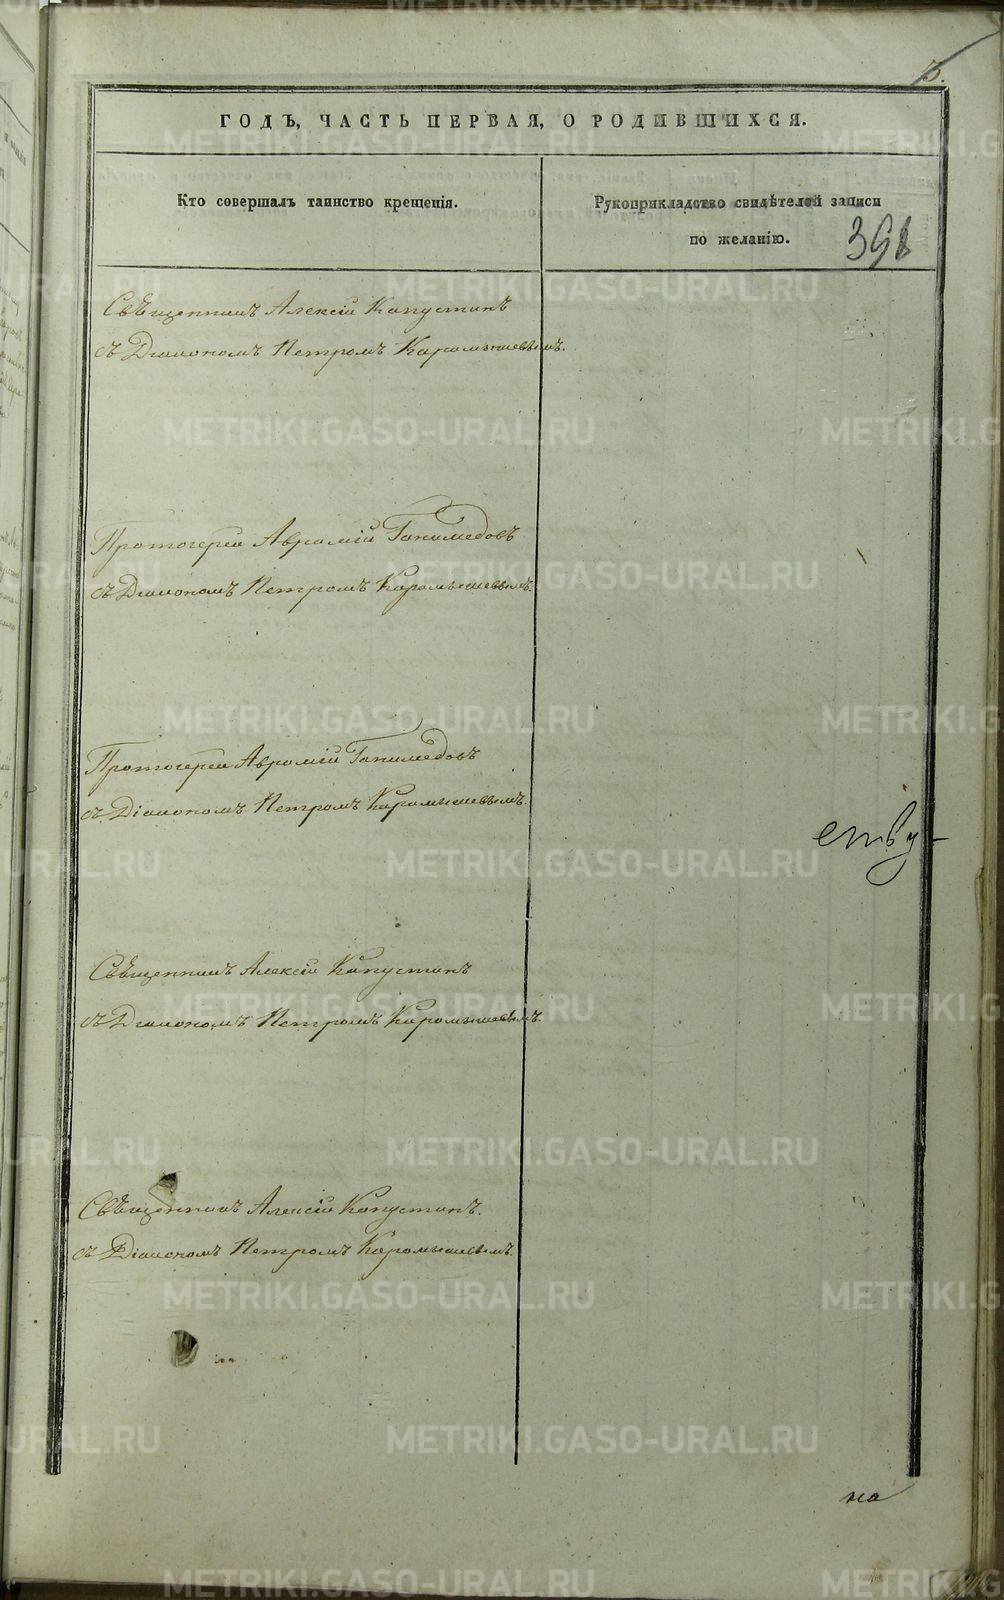 3.
ГОДЪ, ЧАСТЬ ПЕРВАЯ, О РОДИВШИХСЯ.
Кто совершалъ таинство крещенія.
Рукоприкладство свидѣтелей записи
по желанію.
398
Священникъ Алексій Капустинъ
съ Діакономъ Петромъ Карамышевымъ.
Протоіерей Аврамій Ганимедовъ
съ Діакономъ Петромъ Карамышевымъ.
Протоіерей Аврамій Ганимедовъ
съ Діакономъ Петромъ Карамышевымъ.
ству-
Священникъ Алексій Капустинъ
съ Діакономъ Петромъ Карамышевымъ.
Священникъ Алексій Капустинъ.
съ Діакономъ Петромъ Карамышевымъ.
на
METRIKI.GASO-URAL.RU